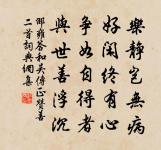 樂靜豈無病
好閑終有心
爭如自得者
與世善浮沉
邵雍答和吳傳正贊善
二首詞典網